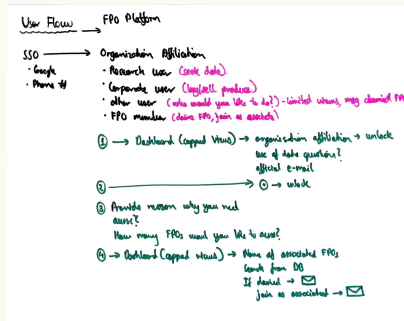 User Flow → FPO Platform
SSO → Organization Affiliation
• Google • Research user (seek data)
• Phone # • Corporate user (buy/sell produce)
• other user (who would you like to do?) - limited views, may channel FP
• FPO member (claim FPO, join as associate)
① → Dashboard (capped views) → organisation affiliation → unlock
use of data question?
official e-mail
② → → unlock
③ Provide reason why you need
access?
How many FPOs would you like to access?
④ → Dashboard (capped views) → Name of associated FPOs
Search from DB
If denied →
join as associated →